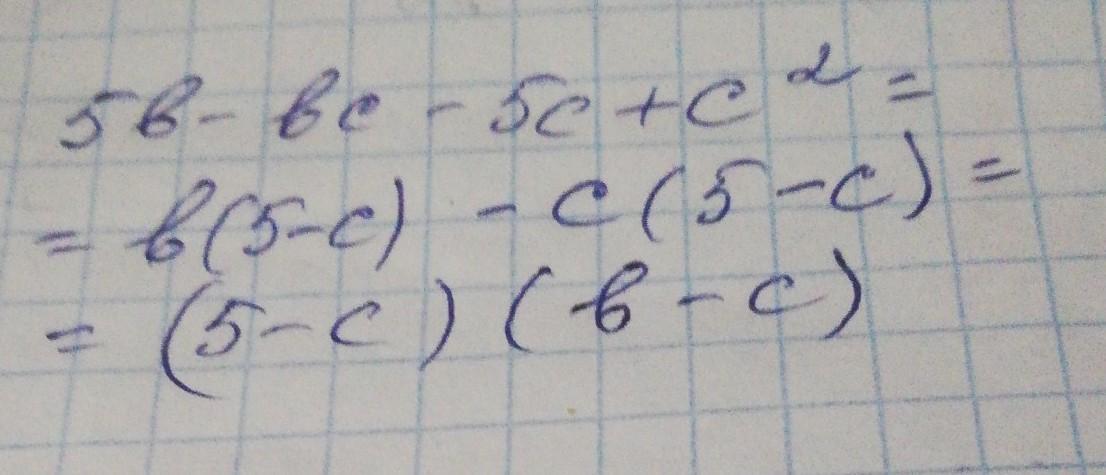 5b - bc - 5c + c² =
= b(5-c) - c(5-c) =
= (5-c)(b-c)